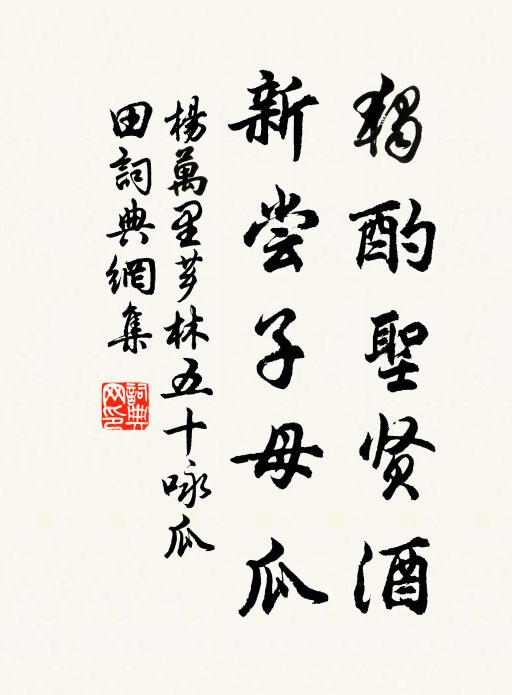 獨酌聖贤酒
新尝子母瓜
楊萬里芗林五十咏瓜
田詞典網集
詞典网印